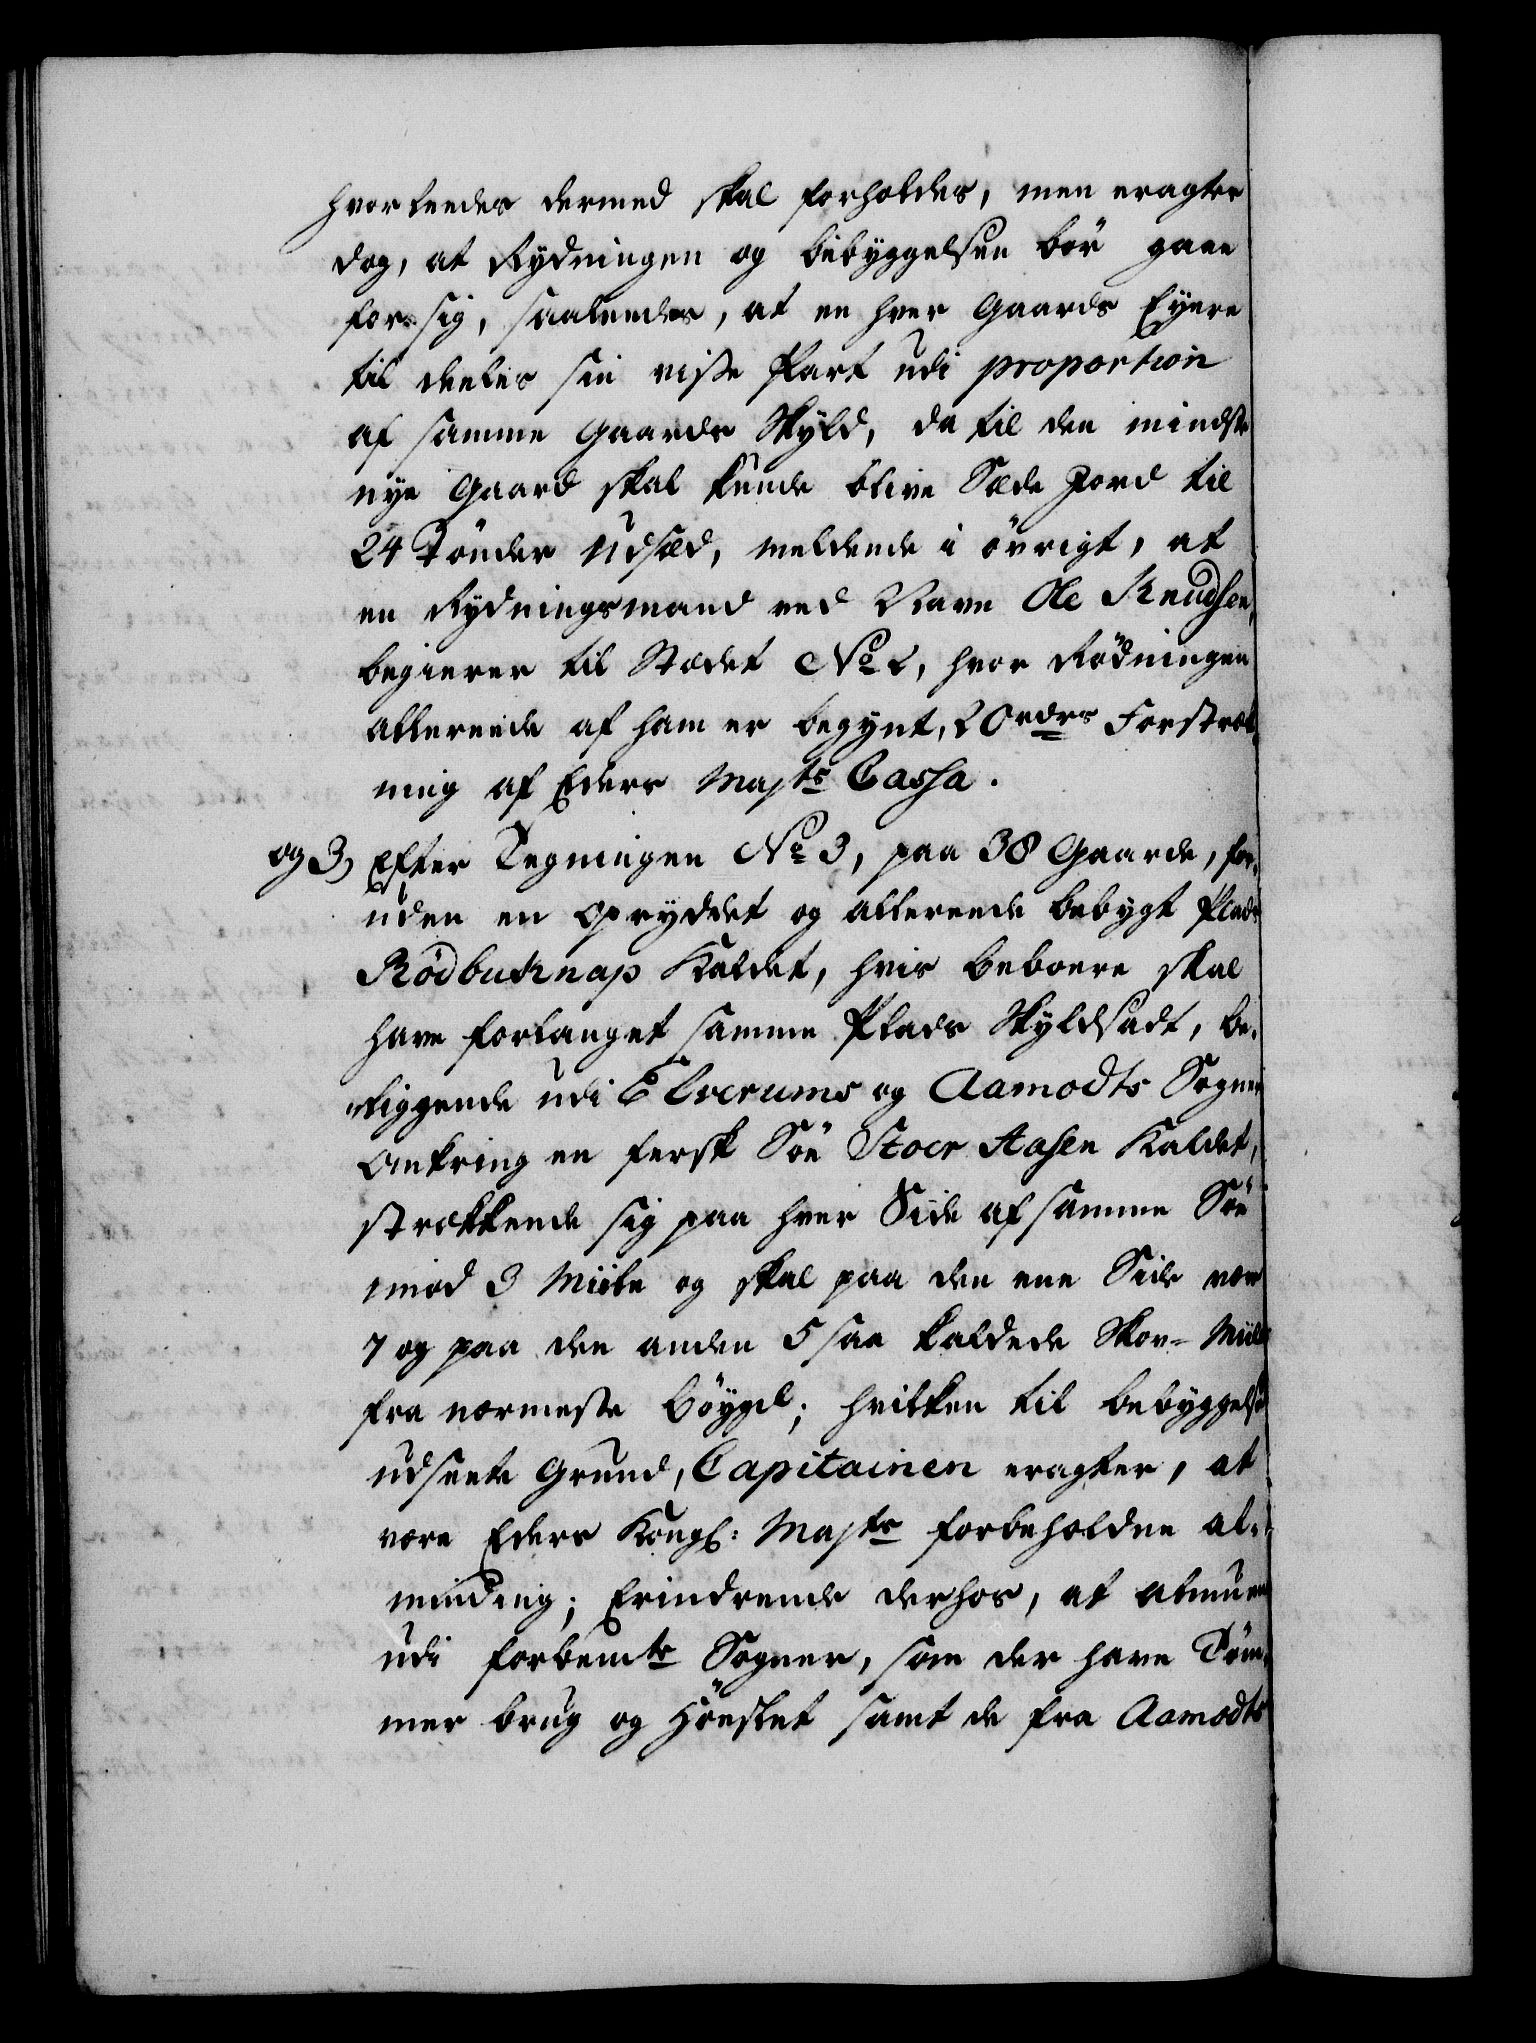 hvorleedes dermed skal forholdes, men eragter
dog, at Rydningen og bebyggelsen bör gaae
for sig, saaleedes, at en hver Gaards Eyere
til deeles sin visse Part udi proportion
af samme Gaards Skyld, da til den mindste
nye Gaard skal kunde blive Sæde Jord til
24 Tönder Udsæd, meldende i övrigt, at
en Rydningsmand ved Navn Ole Knudsen,
begierer til Stædet No 2, hvor Rödningen
allereede af ham er begynt, 20 rdrs Forstræk-
ning af Eders Majts Cassa.
og 3, Efter Tegningen No 3, paa 38 Gaarde, for-
uden en opryddet og allereede bebygt Plads
Rödbuknap Kaldet, hvis beboere skal
have forlanget samme Plads Skyldsadt, be-
liggende udi Elverums og Aamodts Sogne
Omkring en fersk Söe Stoer Aasen Kaldet,
strækkende sig paa hver Side af samme Söe
mod 3 Miile og skal paa den ene Side være
7 og paa den anden 5 saa kaldede Skov-Miile
fra nærmeste böygd; hvilken til bebyggelse
udseete Grund, Capitainen eragter, at
være Eders Kongl: Majts forbeholdne al-
minding; Erindrende derhos, at almuen
udi forbemte Sogner, som der have Töm-
mer brug og Höeslet samt de fra Aamodts